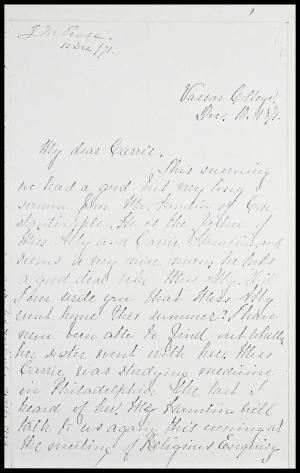 1
10 Dec /71.
Vassar College,
Dec. 10. 1871.
My dear Carrie,
This morning
we had a good but very long
sermon from Mr. Hamlin of Con-
stantinople. He is the father of
Miss Abby and Carrie Hamlin, and
seems a very nice man, he looks
a good deal like Miss Abby. Did
I ever write you that Miss Abby
went home this summer? I have
never been able to find out whether
her sister went with her. Miss
Carrie was studying medicine
in Philadelphia the last I
heard of her. Mr. Hamlin will
talk to us again this evening at
the meeting of Religious Enquiry